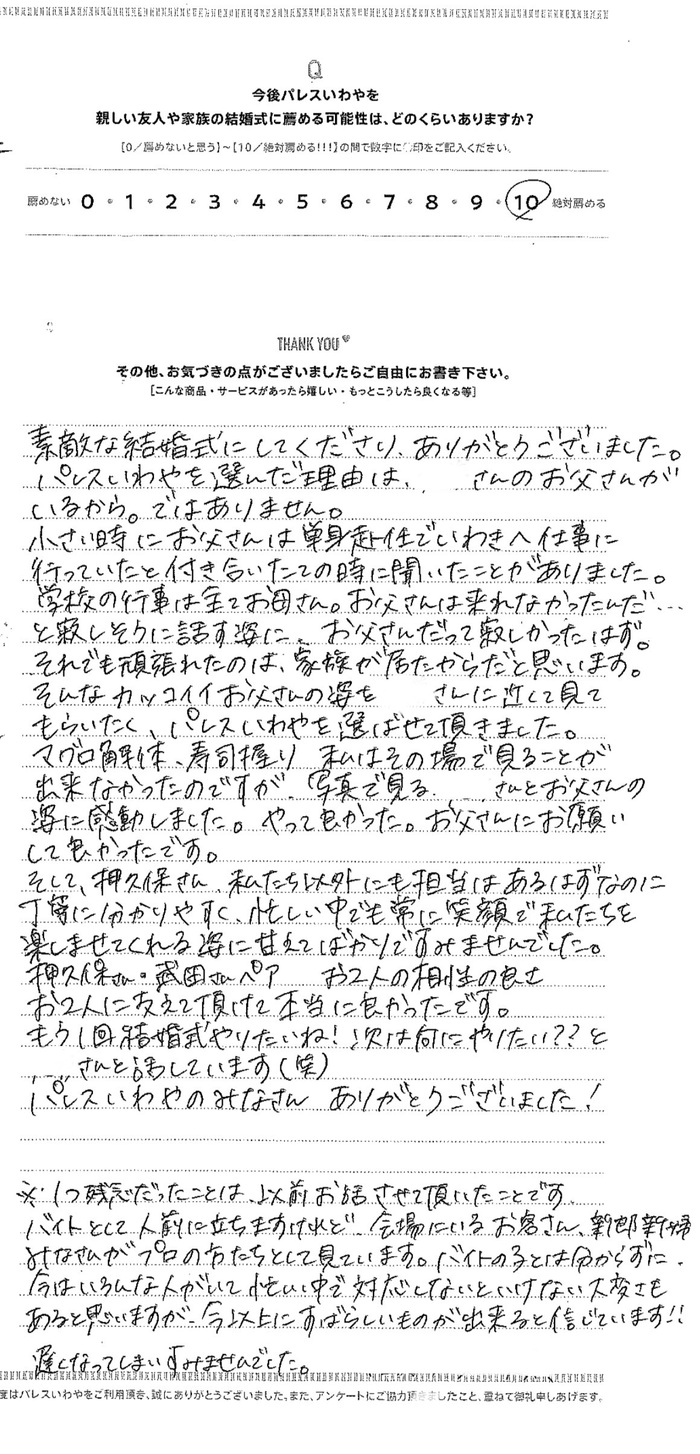 Q
今後パレスいわやを
親しい友人や家族の結婚式に薦める可能性は、どのくらいありますか?
【0／薦めないと思う】~【10／絶対薦める!!!】の間で数字に〇印をご記入ください。
薦めない 0 • 1 • 2 • 3 • 4 • 5 • 6 • 7 • 8 • 9 • 10 絶対薦める
THANK YOU♥
その他、お気づきの点がございましたらご自由にお書き下さい。
[こんな商品・サービスがあったら嬉しい・もっとこうしたら良くなる等]
素敵な結婚式にしてくださり、ありがとうございました。
パレスいわやを選んだ理由は、 さんのお父さんが
いるから。ではありません。
小さい時にお父さんは単身赴任でいわきへ仕事に
行っていたと付き合いたての時に聞いたことがありました。
学校の行事は全てお母さん。お父さんは来れなかったんだ…
と寂しそうに話す姿に、お父さんだって寂しかったはず。
それでも頑張れたのは、家族が居たからだと思います。
そんなカッコイイお父さんの姿を さんに近くで見て
もらいたく、パレスいわやを選ばせて頂きました。
マグロ解体、寿司握り 私はその場で見ることが
出来なかったのですが、写真で見る さんとお父さんの
姿に感動しました。やって良かった。お父さんにお願い
して良かったです。
そして、押久保さん、私たち以外にも担当はあるはずなのに
丁寧に分かりやすく、忙しい中でも常に笑顔で私たちを
楽しませてくれる姿に甘えてばかりですみませんでした。
押久保さん・武田さんペア お2人の相性の良さ
お2人に支えて頂けて本当に良かったです。
もう1回結婚式やりたいね!次は何にやりたい??と
さんと話しています(笑)
パレスいわやのみなさん ありがとうございました!
※1つ残念だったことは、以前お話させて頂いたことです。
バイトとして人前に立ちますけれど、会場にいるお客さん、新郎新婦
みなさんがプロの方たちとして見ています。バイトの子とは分からずに、
今はいろんな人がいて忙しい中で対応しないといけない大変さも
あると思いますが、今以上にすばらしいものが出来ると信じています!!
遅くなってしまいすみませんでした。
度はパレスいわやをご利用頂き、誠にありがとうございました。また、アンケートにご協力頂きましたこと、重ねて御礼申しあげます。